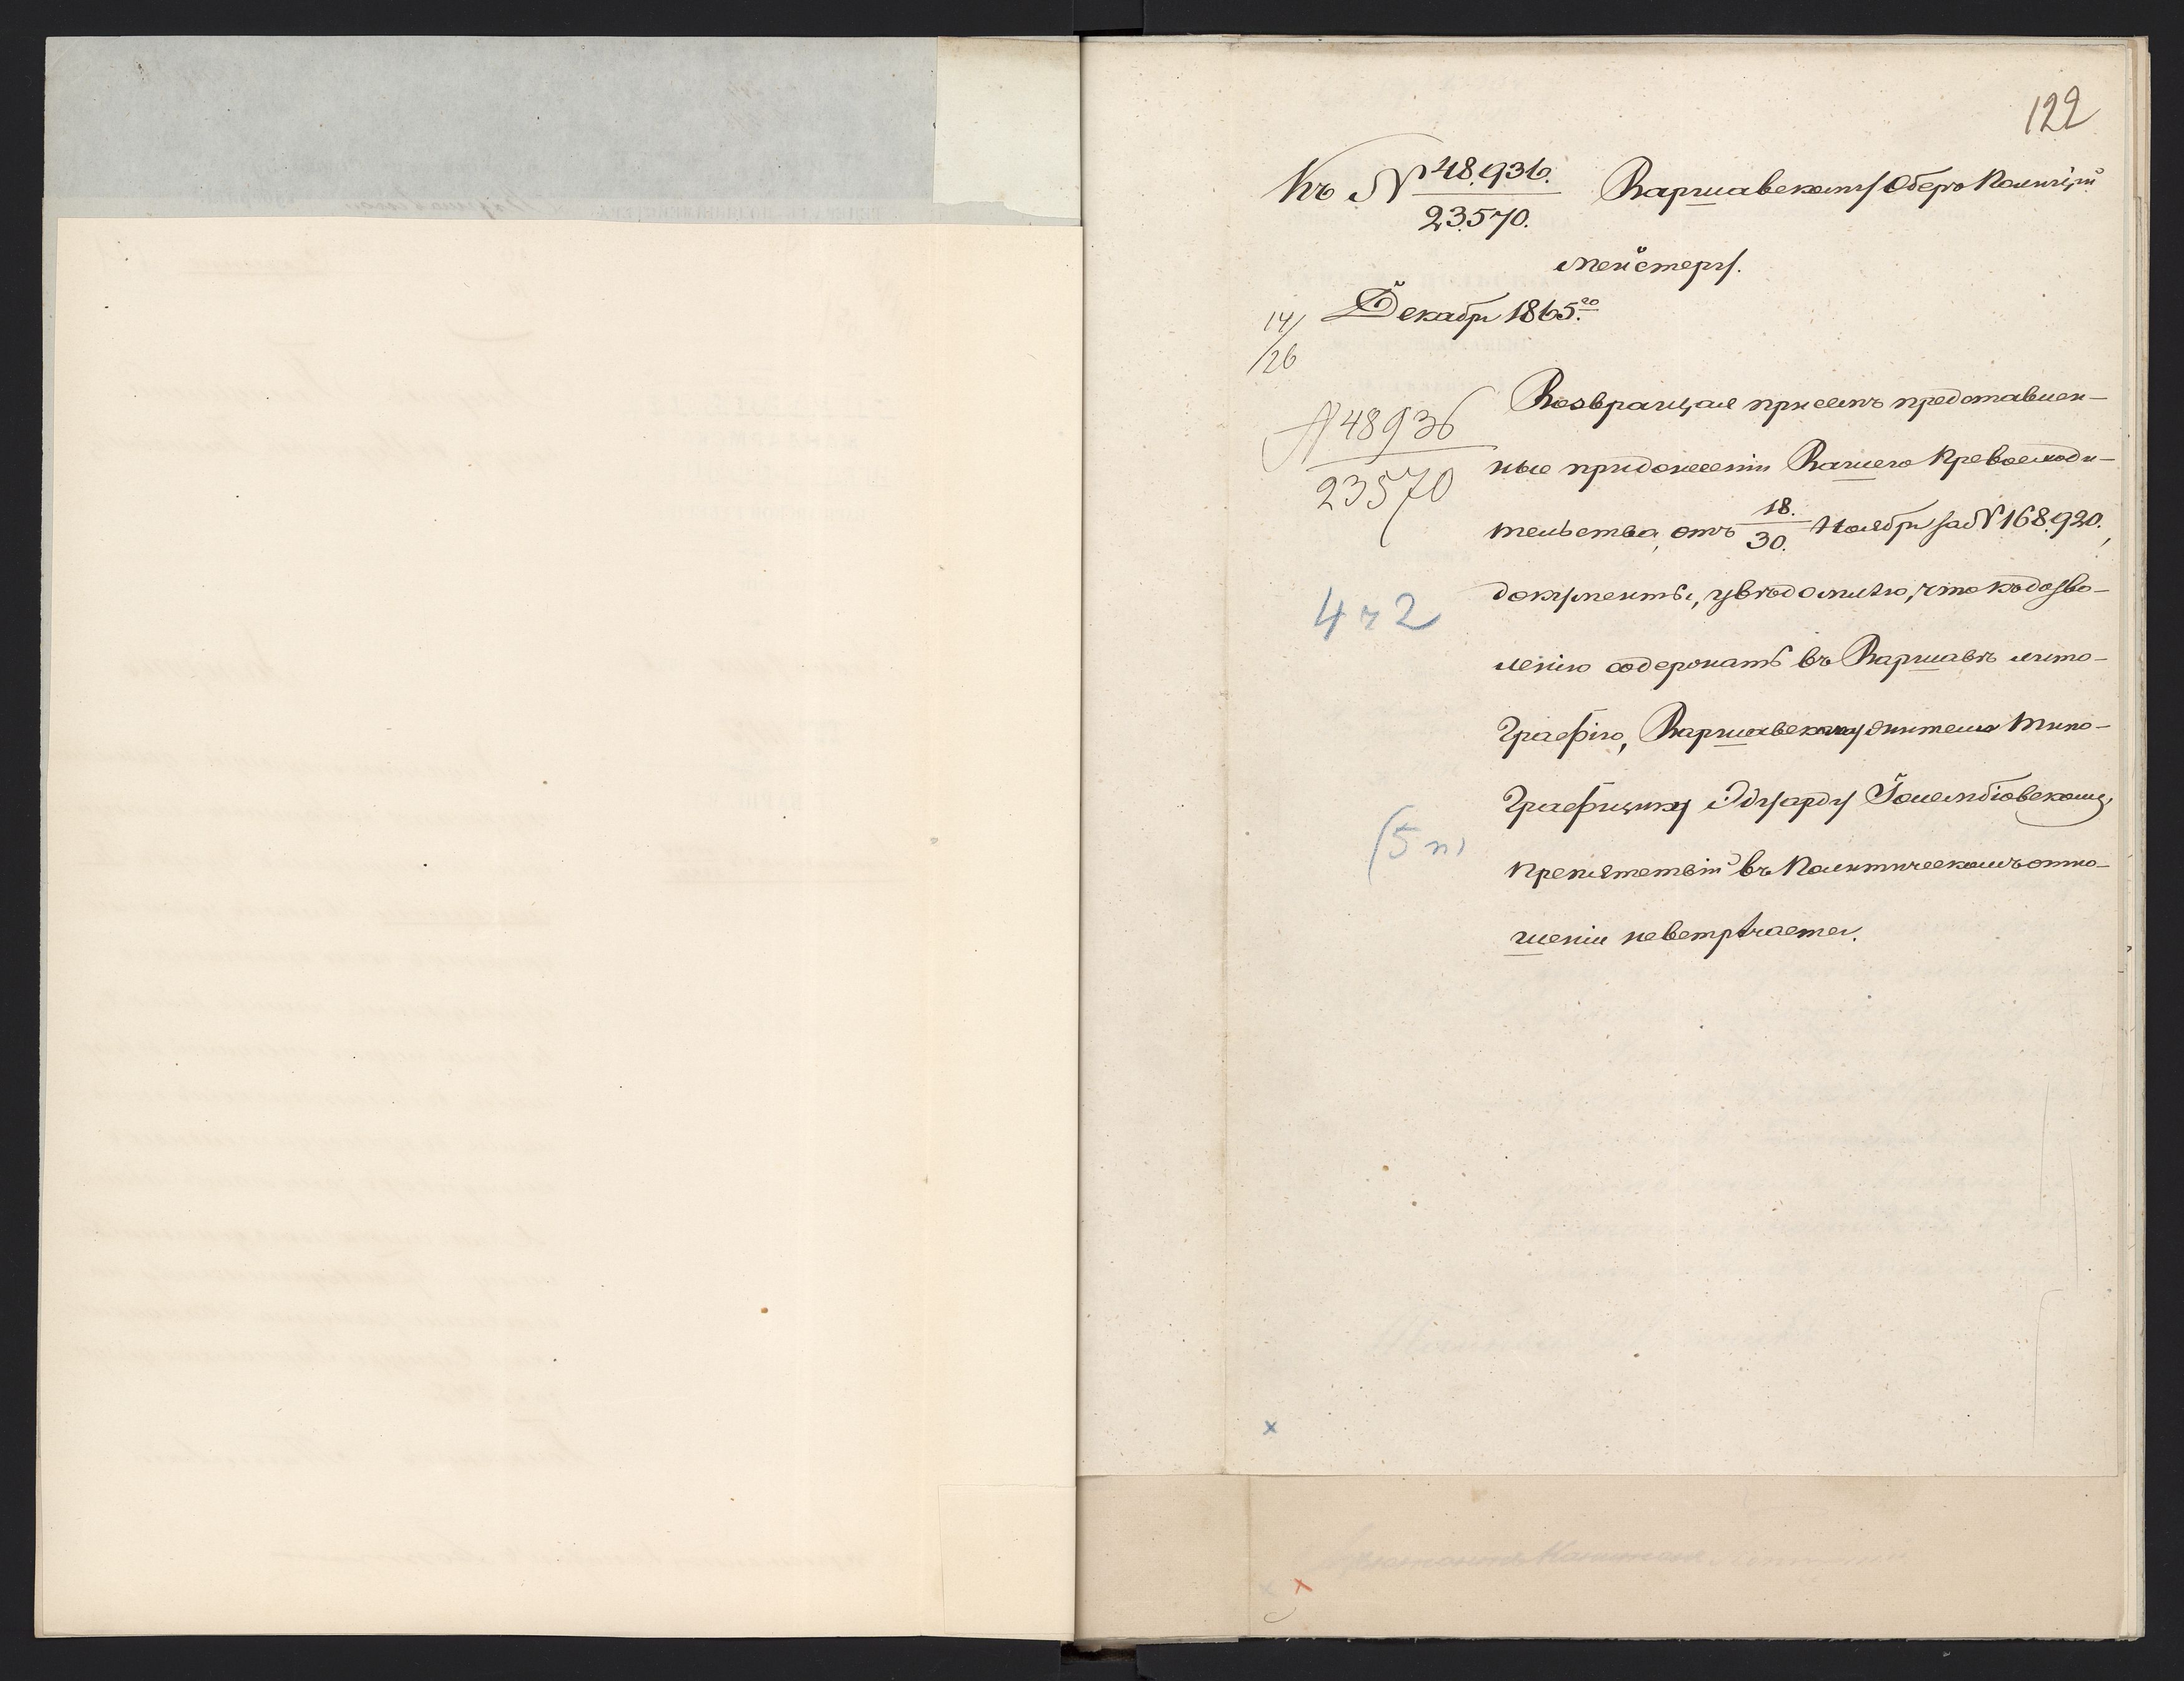 122
Къ № 48.936.
23.570.
Варшавскому Оберъ Полиціи
мейстеру.
14/26 Декабря 1865.го
Возвращая присемъ представлен-
№ 48936
23570
ные придонесеніи Вашего Превосходи-
тельства, отъ 18./30. Ноября за № 168.920.,
документы, увѣдомляю, что къ дозво-
4 ч 2
ленію содержать въ Варшавѣ лито-
графію, Варшавскому жителю типо-
графщику Эдуарду Голембіовскому,
(5 п)
препятствій въ Политическомъ отно-
шеніи невстрѣчается.